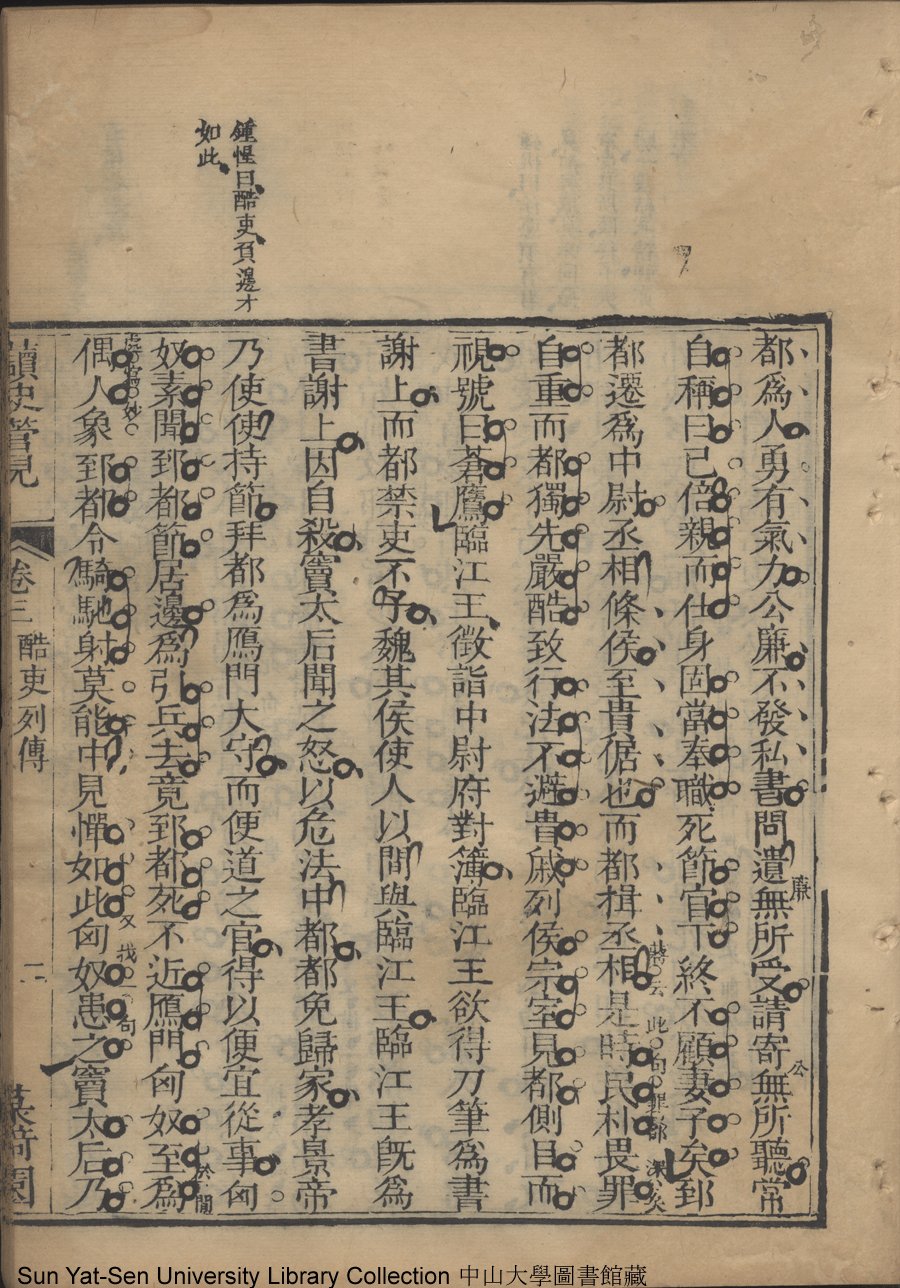 鍾惺曰酷吏負邊才
如此
都爲人勇有氣力公廉不發私書問遺無所受請寄無所聽常
廉
公
自稱曰已倍親而仕身固當奉職死節官下終不顧妻子矣郅
都遷爲中尉丞相條侯至貴倨也而都揖丞相是時民朴畏罪
云此句罪郅深矣
自重而都獨先嚴酷致行法不避貴戚列侯宗室見都側目而
視號曰蒼鷹臨江王徵詣中尉府對簿臨江王欲得刀筆爲書
謝上而都禁吏不予魏其侯使人以間與臨江王臨江王旣爲
書謝上因自殺竇太后聞之怒以危法中都都免歸家孝景帝
乃使使持節拜都爲鴈門太守而便道之官得以便宜從事匈
奴素聞郅都節居邊爲引兵去竟郅都死不近鴈門匈奴至爲
偶人象郅都令騎馳射莫能中見憚如此匈奴患之竇太后乃
寫妙
又找一句
讀史管見
卷三
酷吏列傳
二
Sun Yat-Sen University Library Collection 中山大學圖書館藏